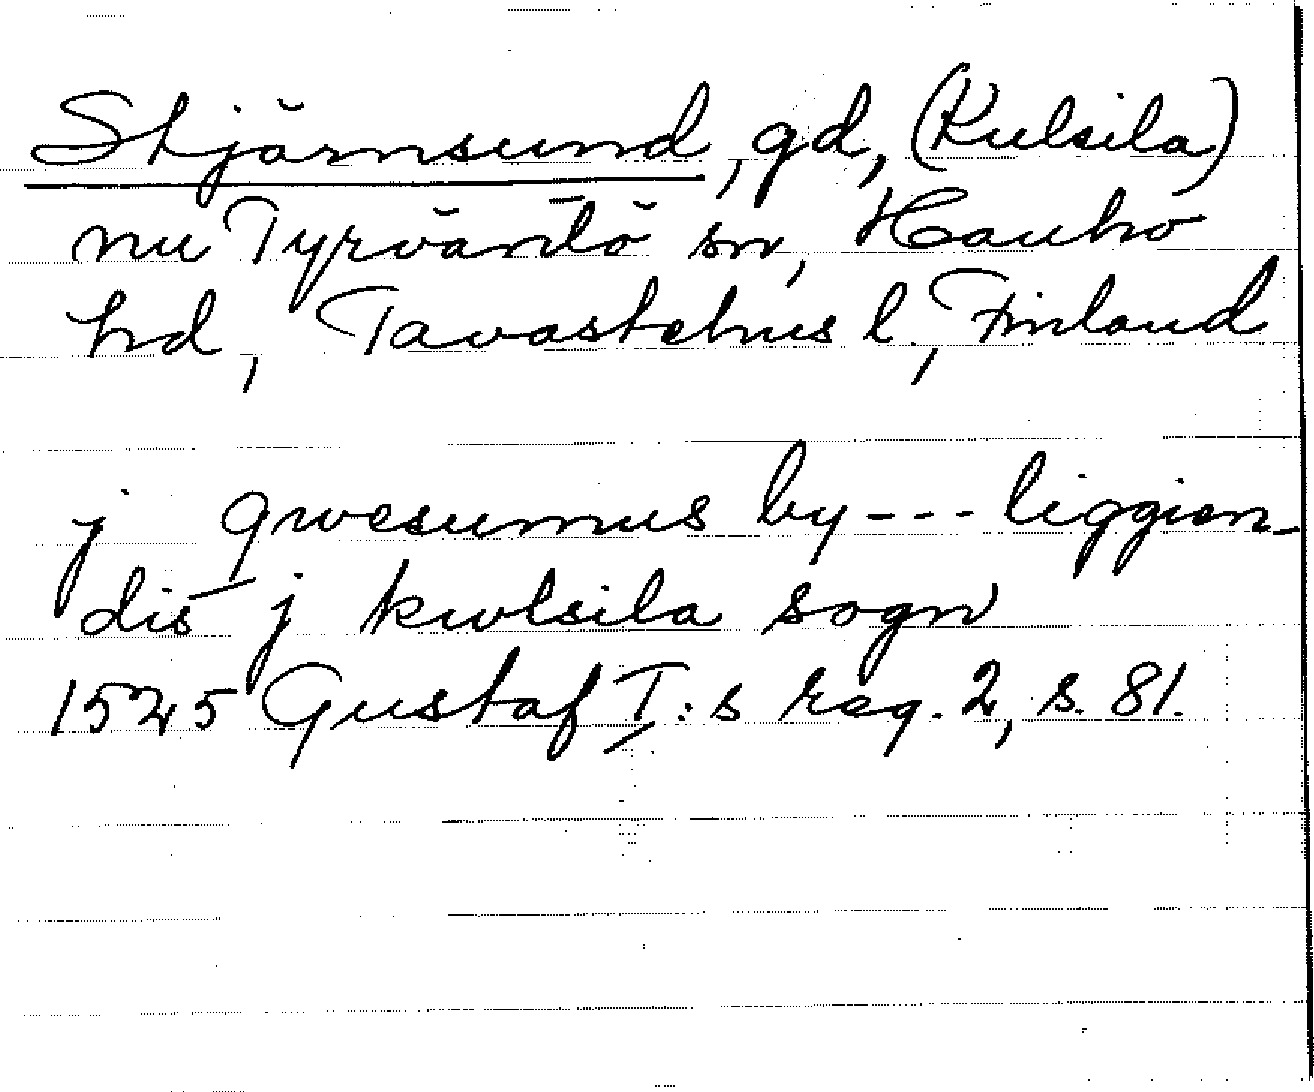 Stjärnsund, gd, (Kulsila)
nu Tyrväntö sn, Hauho
hd, Tavastehus l., Finland
j qwesumus by --- liggien-
dis j kwlsila sogn
1525 Gustaf I:s reg. 2, s. 81.